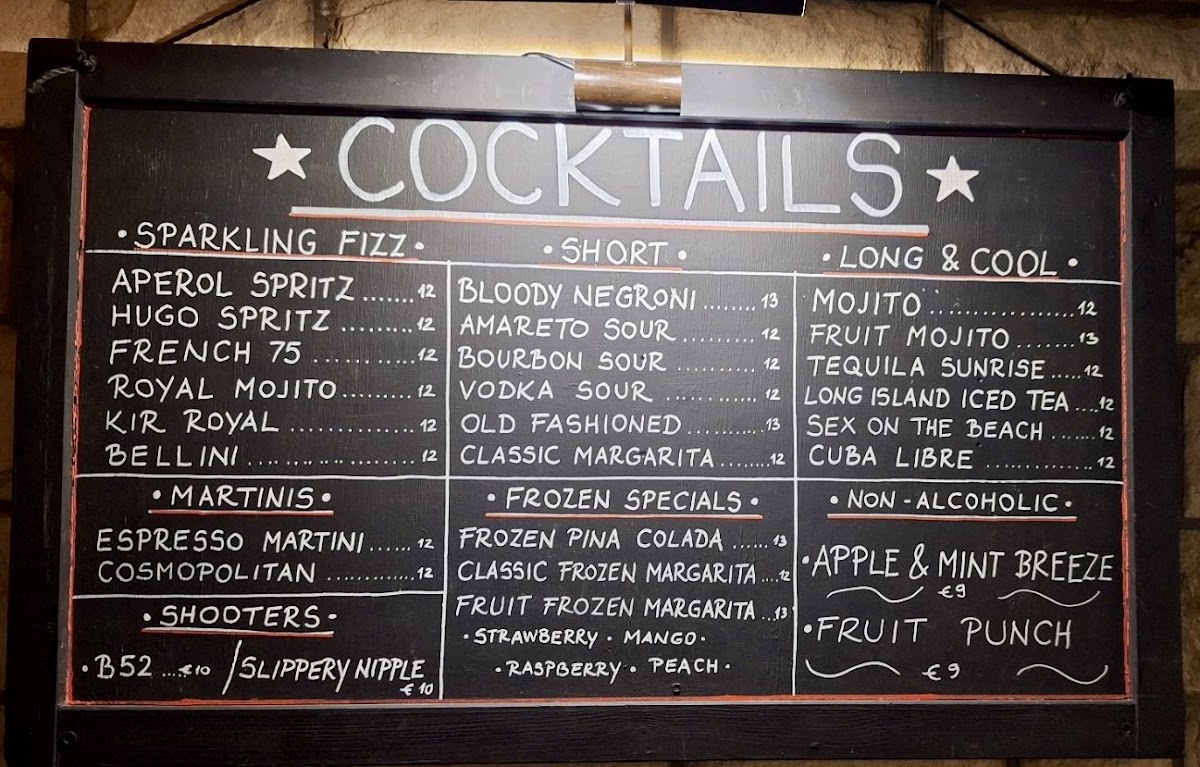 COCKTAILS
• SPARKLING FIZZ •
APEROL SPRITZ ....... 12
HUGO SPRITZ ......... 12
FRENCH 75 ........... 12
ROYAL MOJITO ........ 12
KIR ROYAL ............. 12
BELLINI .................. 12
• MARTINIS •
ESPRESSO MARTINI ...... 12
COSMOPOLITAN ............. 12
• SHOOTERS •
• B52 .... €10 / SLIPPERY NIPPLE
€10
• SHORT •
BLOODY NEGRONI ........ 13
AMARETO SOUR ......... 12
BOURBON SOUR .......... 12
VODKA SOUR ............ 12
OLD FASHIONED .......... 13
CLASSIC MARGARITA ........ 12
• FROZEN SPECIALS •
FROZEN PINA COLADA ...... 13
CLASSIC FROZEN MARGARITA .... 12
FRUIT FROZEN MARGARITA ... 13
• STRAWBERRY • MANGO •
• RASPBERRY • PEACH •
• LONG & COOL •
MOJITO ................. 12
FRUIT MOJITO ....... 13
TEQUILA SUNRISE ..... 12
LONG ISLAND ICED TEA .... 12
SEX ON THE BEACH ....... 12
CUBA LIBRE ............. 12
• NON-ALCOHOLIC •
• APPLE & MINT BREEZE
€9
• FRUIT PUNCH
€9